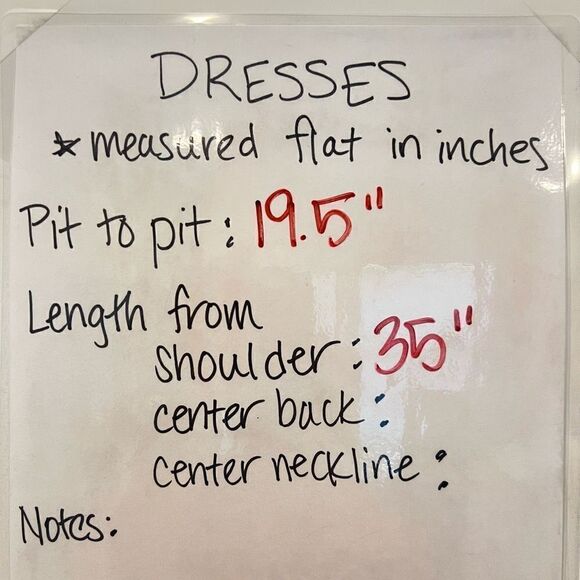 DRESSES
* measured flat in inches
Pit to pit: 19.5"
Length from
shoulder: 35"
center back:
center neckline:
Notes: